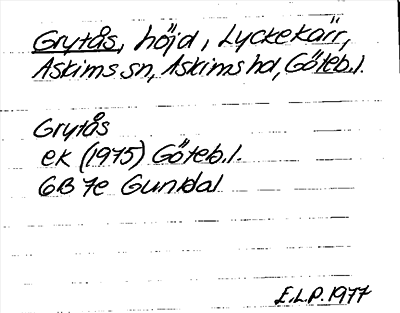 Grytås, höjd, Lyckekärr,
Askims sn, Askims hd, Göteb. l.
Grytås
ek (1975) Göteb. l.
6B 7e Gunndal
E.L.P. 1977